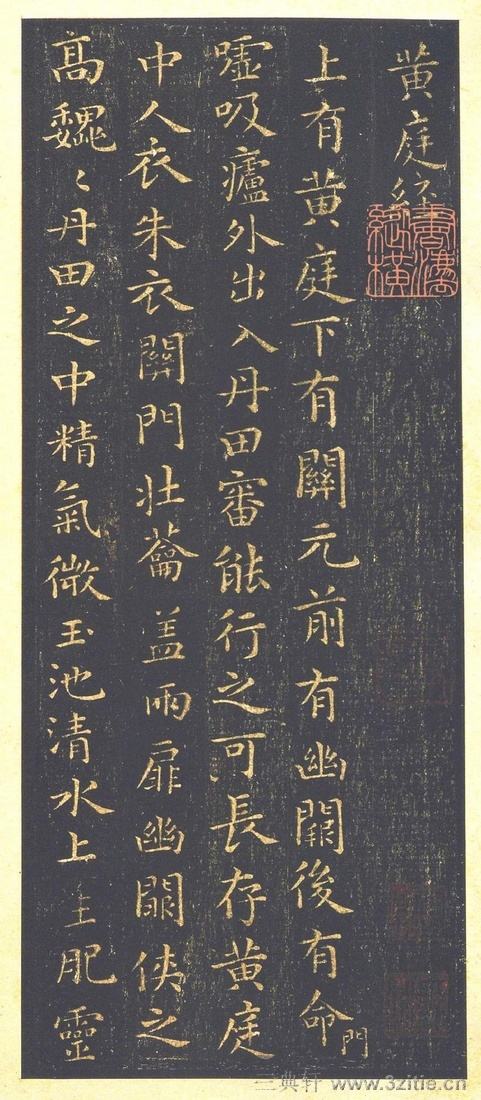 黄庭經
上有黄庭下有關元前有幽闕後有命門
嘘吸廬外出入丹田審能行之可長存黄庭
中人衣朱衣關門壮蘥盖兩扉幽闕侠之
高魏〻丹田之中精氣微玉池清水上生肥靈
三典轩 www.3zitie.cn